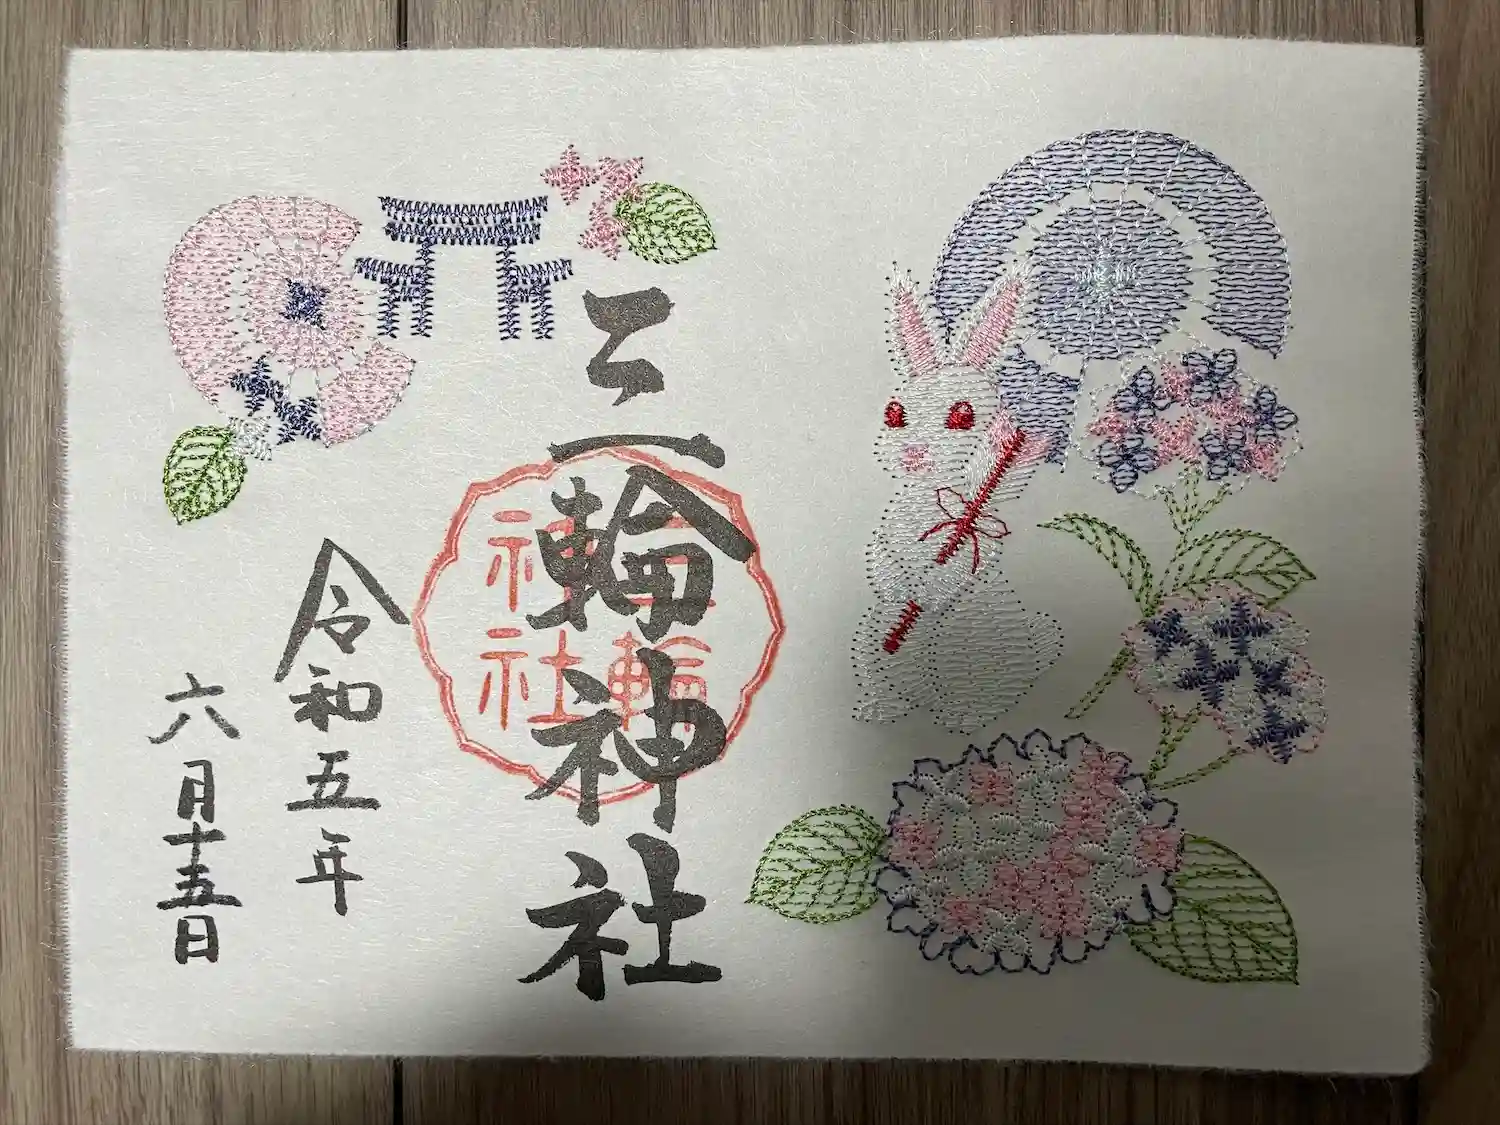 三輪神社
三輪
神社
令和五年
六月十五日